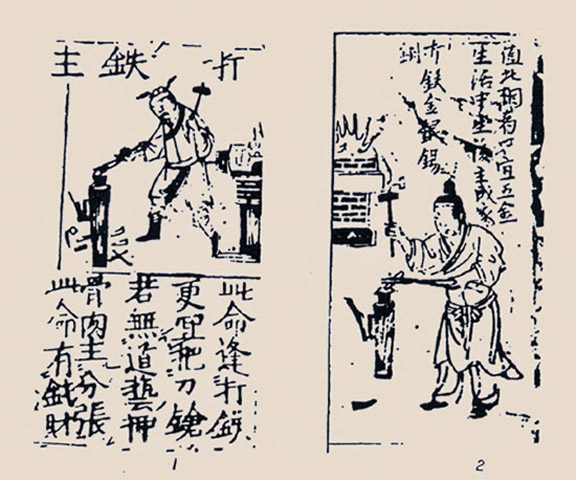 打鉄主
此命逢打鉄
更宜把刀鎗
若無道藝押
骨肉主分張
此命有鉄財
1
值此相者可宜五金
生活中坐後主成家
打鉄金銀錫
銅
2